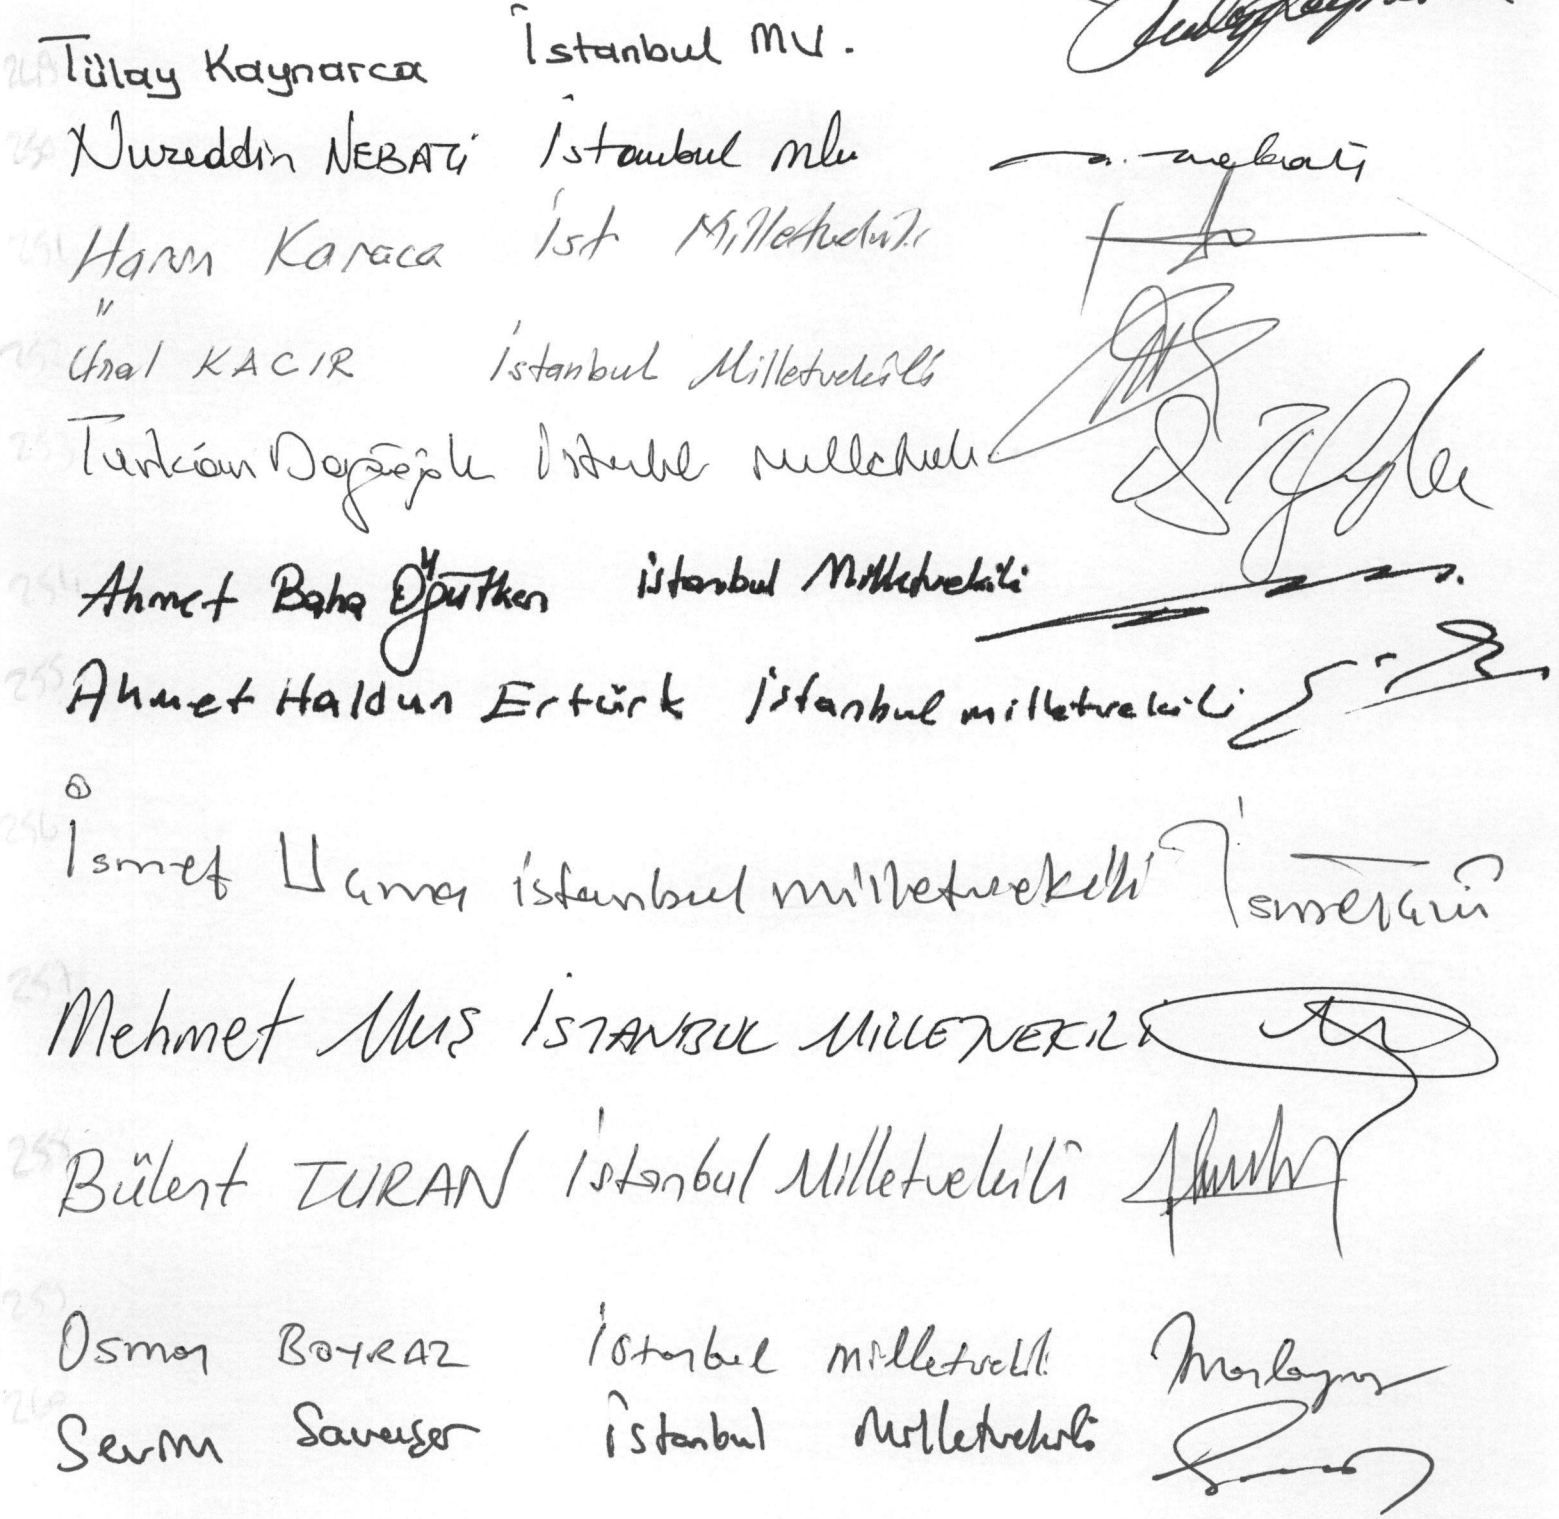 249 Tülay Kaynarca İstanbul MV.
250 Nureddin NEBATİ İstanbul mlv n. nebati
251 Harun Karaca İst Milletvekili
252 Ünal KACIR İstanbul Milletvekili
253 Türkan Dağoğlu İstanbul milletvek
254 Ahmet Baha Öğütken istanbul Milletvekili
255 Ahmet Haldun Ertürk istanbul milletvekili
256 İsmet Uçma istanbul milletvekili
257 Mehmet Muş İSTANBUL MİLLETVEKİLİ
258 Bülent TURAN İstanbul Milletvekili
259 Osman BOYRAZ İstanbul milletvekili
260 Sevim Savaşer İstanbul Milletvekili